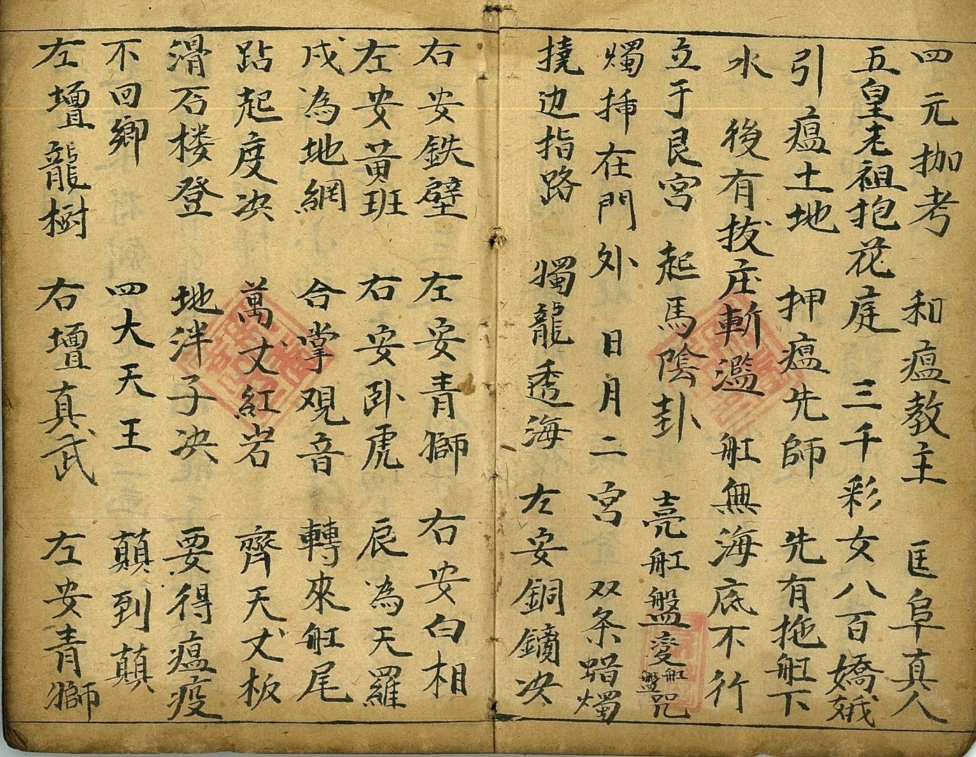 四元抝考 和瘟教主 匡阜真人
五皇老祖抱花庭 三千彩女八百嬌娥
引瘟土地 押瘟先師 先有拖舡下
水 後有拔庄斬濫 舡無海底不行
立于艮宮 起馬陰卦 亮舡盤 变舡盤咒
燭揷在門外 日月二宮 双条蜡燭
撓边指路 獨龍透海 左安銅鏑决
右安鉄壁 左安青獅 右安白相
左安黄班 右安卧虎 辰為天羅
戌為地網 合掌观音 轉來舡尾
跕起度决 萬丈紅岩 齊天丈板
滑石楼登 地泮子决 要得瘟疫
不回鄉 四大天王 顛到顛
左壇龍樹 右壇真武 左安青獅